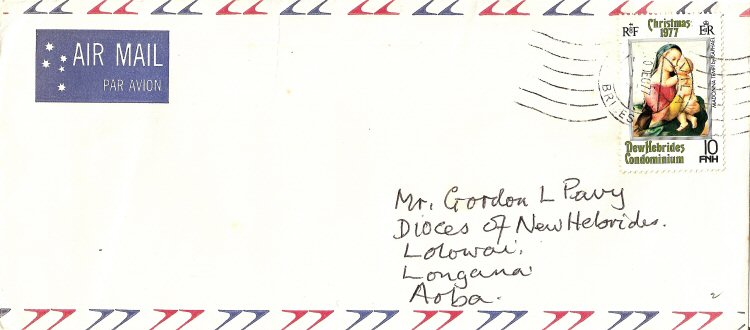 AIR MAIL
PAR AVION
Christmas
1977
RF
ER
New Hebrides
Condominium
10
FNH
Mr. Gordon L Pavy
Dioces of New Hebrides.
Lolowai,
Longana
Aoba.
2